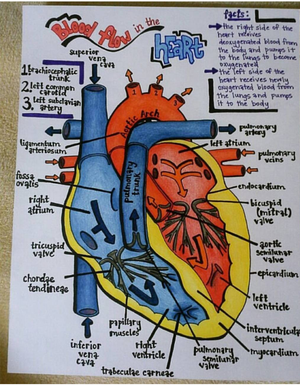 Blood flow in the
HEART
facts:
the right side of the
heart recives
deoxygenated blood from
the body and pumps it
to the lungs to become
oxygenated
the left side of the
heart receives newly
oxygenated blood from
the lungs and pumps
it to the body
superior
vena
cava
1. brachiocephalic
trunk
2. left common
carotid
3. left subclavian
artery
aortic arch
ligamentum
arteriosum
pulmonary
artery
left atrium
pulmonary
veins
fossa
ovalis
pulmonary trunk
endocardium
right
atrium
bicuspid
(mitral)
valve
tricuspid
valve
aortic
semilunar
valve
chordae
tendineae
epicardium
left
ventricle
papillary
muscles
interventricular
septum
inferior
vena
cava
right
ventricle
pulmonary
semilunar
valve
myocardium
trabeculae carneae